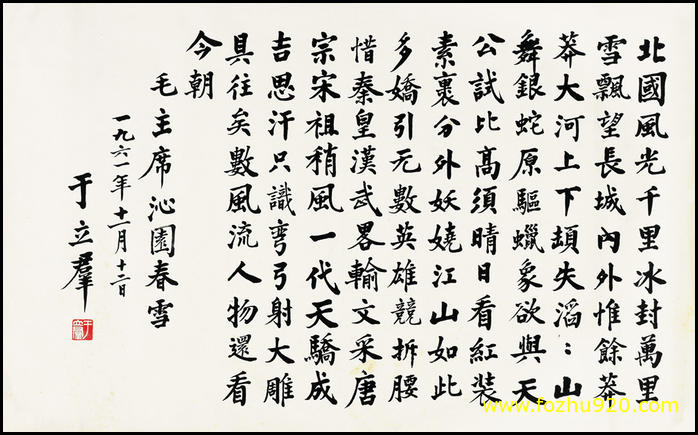 北國風光千里冰封萬里
雪飄望長城內外惟餘莽
莽大河上下頓失滔〻山
舞銀蛇原驅蠟象欲與天
公試比高須晴日看紅裝
素裹分外妖嬈江山如此
多嬌引无數英雄競拆腰
惜秦皇漢武畧輸文采唐
宗宋祖稍風一代天驕成
吉思汗只識彎弓射大雕
具往矣數風流人物還看
今朝
毛主席沁園春雪
一九六一年十一月十二日
于立羣
www.fozhu920.com